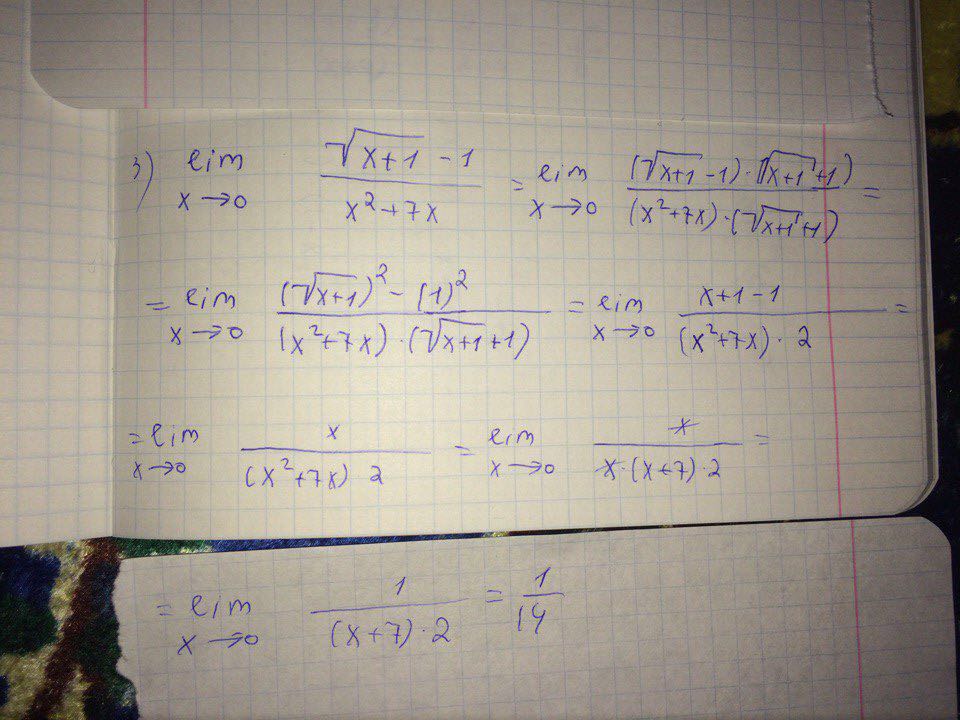 3) lim x→0 (√(x+1) - 1)/(x² + 7x) = lim x→0 ((√(x+1) - 1)·(√(x+1) + 1))/((x² + 7x)·(√(x+1) + 1)) =
= lim x→0 ((√(x+1))² - (1)²)/((x² + 7x)·(√(x+1) + 1)) = lim x→0 (x + 1 - 1)/((x² + 7x)·2) =
= lim x→0 x/((x² + 7x) 2) = lim x→0 x/(x·(x + 7)·2) =
= lim x→0 1/((x + 7)·2) = 1/14